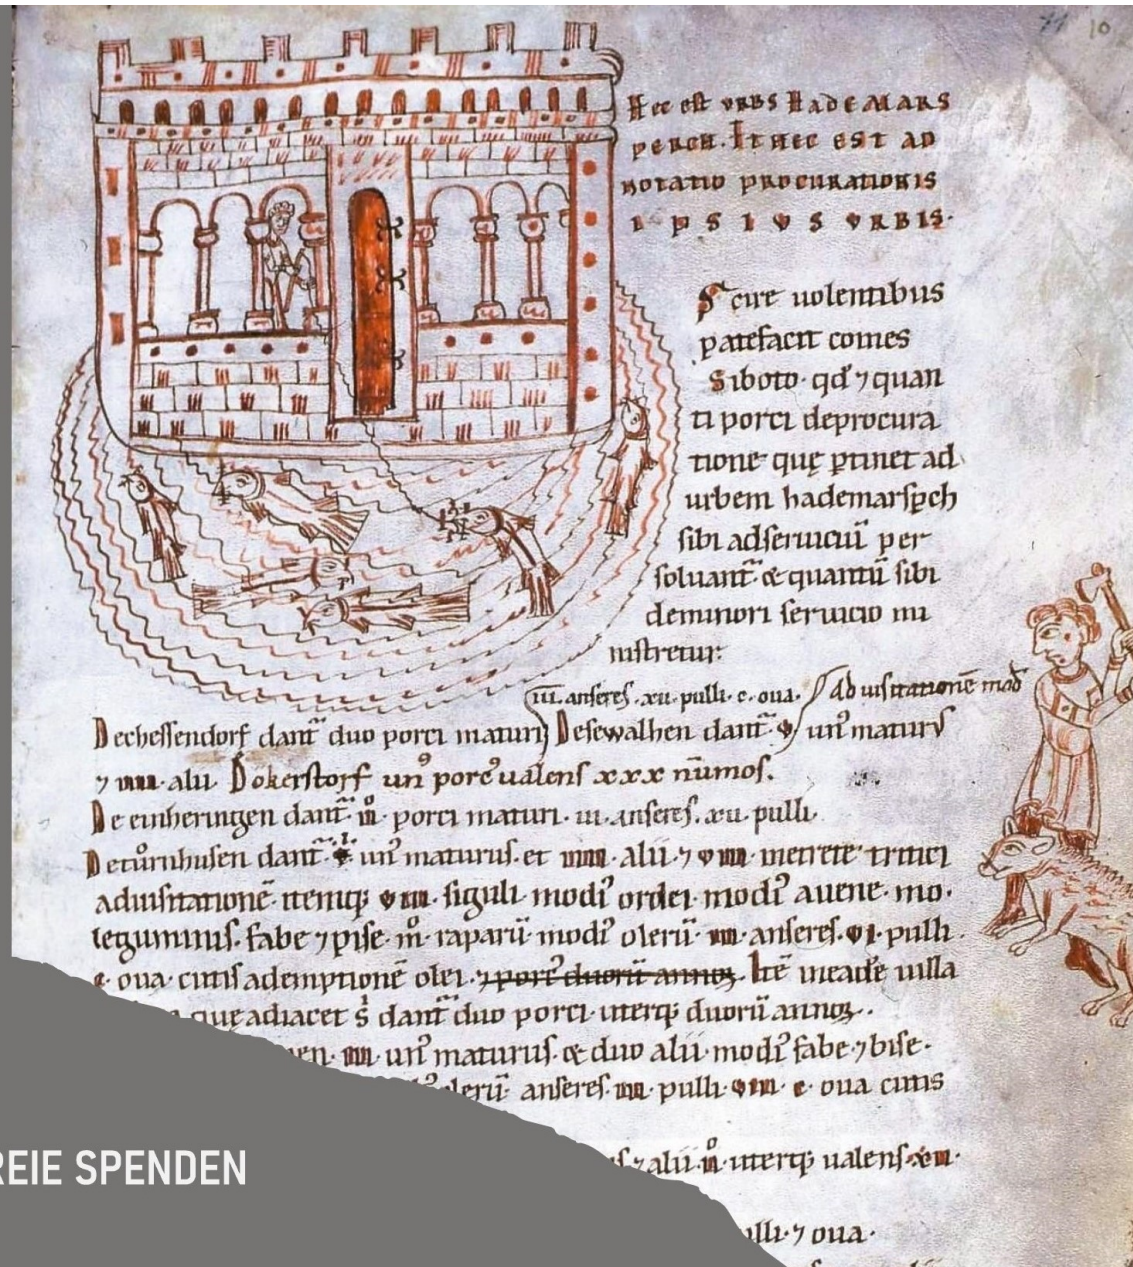 10
Hec est URBS HADEMARS
PERCH. It HEC EST AD
NOTATIO PROCURATIONIS
IPSIUS URBIS.
Scire uolentibus
patefacit comes
Siboto. qđ ⁊ quan
ti porci deprocura
tione quę ptinet ad
urbem hademarspch
sibi adseruiciū per
soluant̄ & quantū sibi
deminori seruicio mi
nistretur:
iii. anseres. xii. pulli. c. oua. Ad uisitationē
Dechessendorf dant̄ duo porci maturi Desewalhen dant̄ un᾽ maturus
⁊ iiii. alii Dokerstorf un᾽ porc᾽ ualens xxx nūmos.
De einheringen dant̄ porci maturi. iii. anseres. xii. pulli.
Detůrnhusen dant̄ un᾽ maturus. et iiii. alii. ⁊ metrete tritici
aduisitationē itemq; siguli modi᾽ ordei modi᾽ auene. mo.
leguminis. fabe ⁊ pise raparū modi᾽ olerū anseres. pulli
c. oua cutis ademptionē olei. ⁊ porc᾽ duorū annoꝝ. Itē uilla
quęadiacet dant̄ duo porci uterq; duorū annoꝝ.
un᾽ maturus. & duo alii modi᾽ fabe ⁊ bise.
anseres. pulli c. oua cutis
⁊ alii uterq; ualens
⁊ oua.
REIE SPENDEN